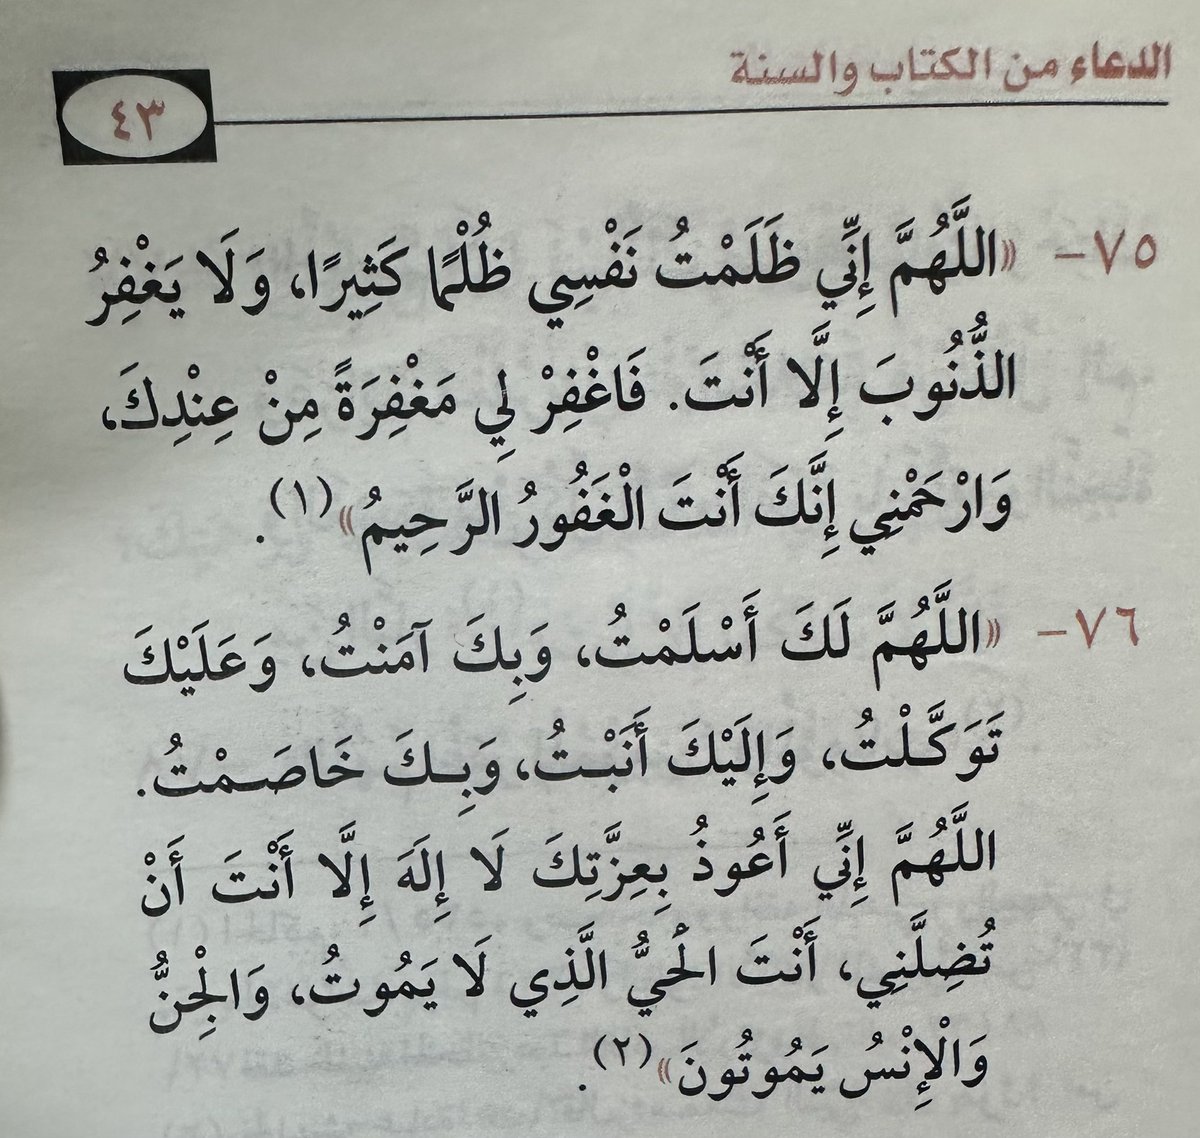 الدعاء من الكتاب والسنة
٤٣
٧٥- «اللَّهُمَّ إِنِّي ظَلَمْتُ نَفْسِي ظُلْمًا كَثِيرًا، وَلَا يَغْفِرُ
الذُّنُوبَ إِلَّا أَنْتَ. فَاغْفِرْ لِي مَغْفِرَةً مِنْ عِنْدِكَ،
وَارْحَمْنِي إِنَّكَ أَنْتَ الْغَفُورُ الرَّحِيمُ»(١).
٧٦- «اللَّهُمَّ لَكَ أَسْلَمْتُ، وَبِكَ آمَنْتُ، وَعَلَيْكَ
تَوَكَّلْتُ، وَإِلَيْكَ أَنَبْتُ، وَبِكَ خَاصَمْتُ.
اللَّهُمَّ إِنِّي أَعُوذُ بِعِزَّتِكَ لَا إِلَهَ إِلَّا أَنْتَ أَنْ
تُضِلَّنِي، أَنْتَ الْحَيُّ الَّذِي لَا يَمُوتُ، وَالْجِنُّ
وَالْإِنْسُ يَمُوتُونَ»(٢).